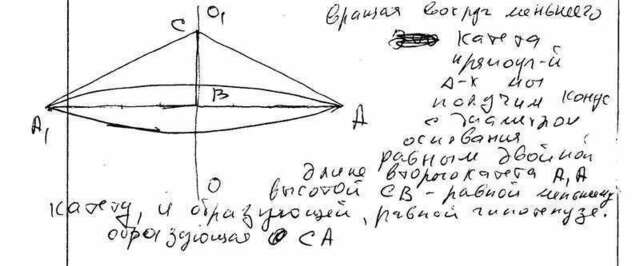 O₁
C
B
A₁
A
O
вращая вокруг меньшего
катета
прямоуг-й
Δ-к мы
получим конус
с диаметром
основания
равным двойной
длине второго катета A₁A
высотой CB - равной меньшему
катету, и образующей, равной гипотенузе.
образующая CA